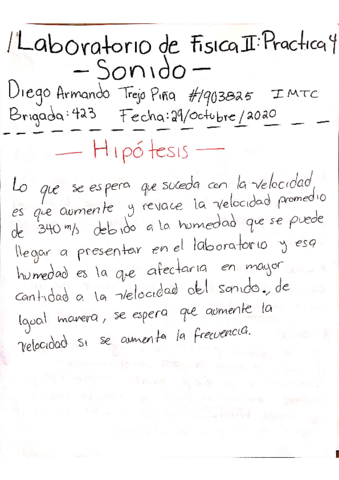 Laboratorio de Fisica II: Practica 4
- Sonido -
Diego Armando Trejo Piña #1903825 IMTC
Brigada: 423 Fecha: 29/Octubre/2020
- Hipótesis -
Lo que se espera que suceda con la velocidad
es que aumente y revace la velocidad promedio
de 340 m/s debido a la humedad que se puede
llegar a presentar en el laboratorio y esa
humedad es la que afectaria en mayor
cantidad a la velocidad del sonido., de
igual manera, se espera que aumente la
velocidad si se aumenta la frecuencia.